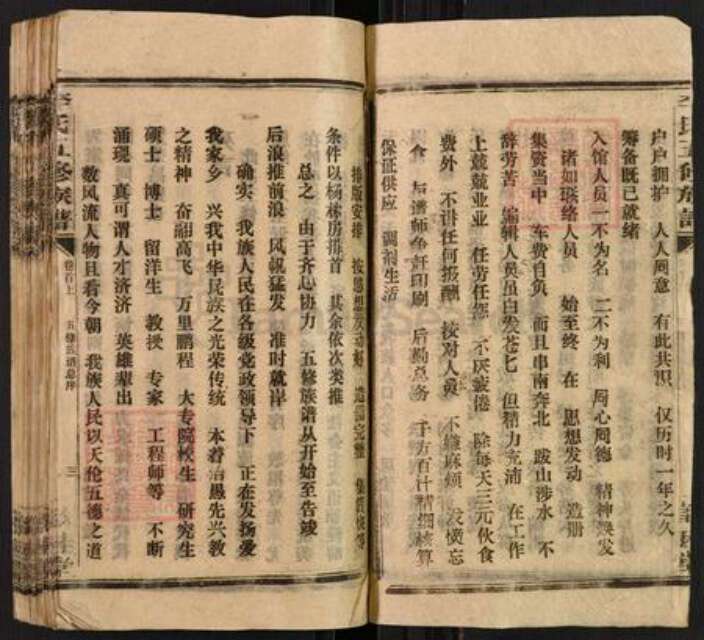 户户拥护 人人同意 有此共识 仅历时一年之久
筹备既已就绪
入馆人员一不为名 二不为利 同心同德 精神焕发
诸如联络人员 始至终 在 思想发动 造册
集资当中 车费自负 而且串南奔北 跋山涉水 不
辞劳苦 编辑人员虽白发苍匕 但精力充沛 在工作
上兢兢业业 任劳任怨 不厌疲倦 除每天三元伙食
费外 不讲任何报酬 按对人员 不嫌麻烦 发愤忘
食 后谱师争赶印刷 后勤总务 千方百计精打细算
保证供应 调剂生活
排版安排 按思想发动好 造册完整 集资快等
条件以杨林房排首 其余依次类推
总之 由于齐心协力 五修族谱从开始至告竣
后浪推前浪 风帆猛发 准时就岸
确实 我族人民在各级党政领导下 正在发扬爱
我家乡 兴我中华民族之光荣传统 本着治愚先兴教
之精神 奋翮高飞 万里鹏程 大专院校生 研究生
硕士 博士 留洋生 教授 专家 工程师等 不断
涌现 真可谓人才济济 英雄辈出
数风流人物且看今朝 我族人民以天伦五德之道
李氏五修族谱
卷首上
五修族谱总序
三